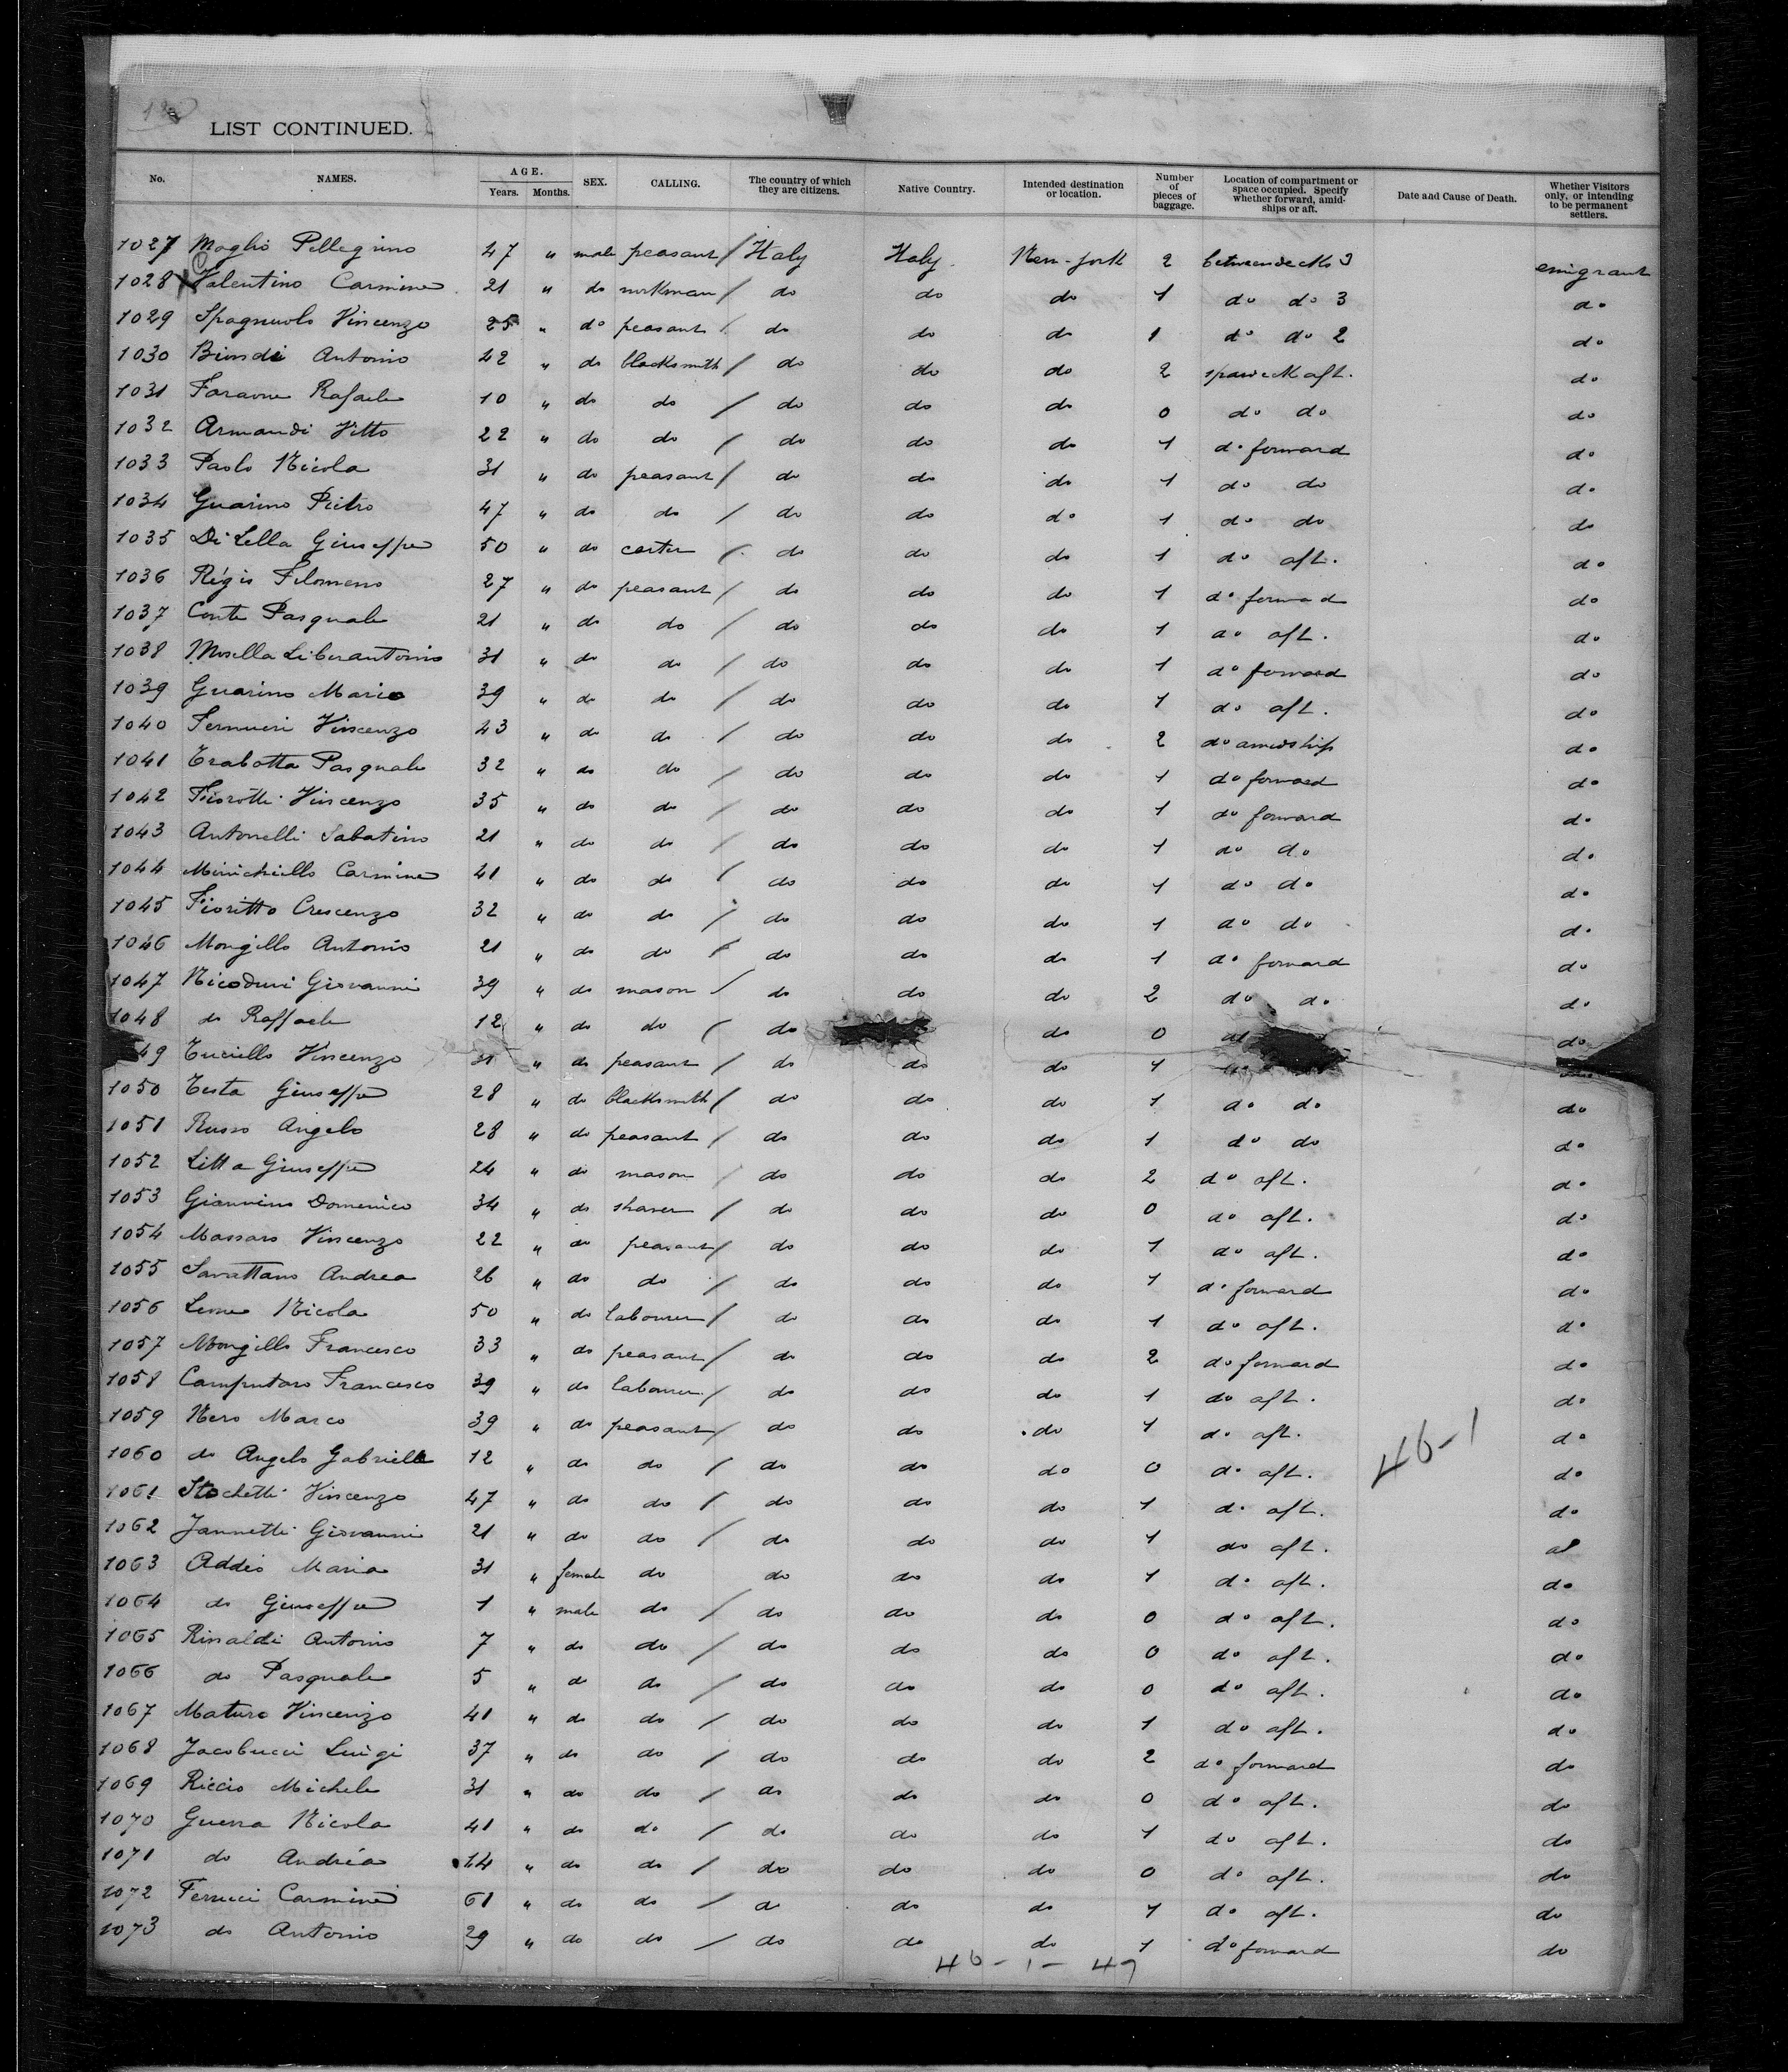 LIST CONTINUED.
No. NAMES. AGE. Years. Months. SEX. CALLING. The country of which they are citizens. Native Country. Intended destination or location. Number of pieces of baggage. Location of compartment or space occupied. Specify whether forward, amidships or aft. Date and Cause of Death. Whether Visitors only, or intending to be permanent settlers.
1027 Moglio Pellegrino 47 " male peasant / Italy Italy New-york 2 betweendecks 3 emigrant
1028 Valentino Carmine 21 " do workman / do do do 1 do do 3 do
1029 Spagnuolo Vincenzo 25 " do peasant / do do do 1 do do 2 do
1030 Biondi Antonio 42 " do blacksmith / do do do 2 spardeck aft. do
1031 Faraone Rafaele 10 " do do / do do do 0 do do do
1032 Armandi Vitto 22 " do do / do do do 1 do forward do
1033 Paolo Nicola 31 " do peasant / do do do 1 do do do
1034 Guarino Pietro 47 " do do / do do do 1 do do do
1035 Di Lella Giuseppe 50 " do carter / do do do 1 do aft. do
1036 Régis Filomeno 27 " do peasant / do do do 1 do forward do
1037 Conte Pasquale 21 " do do / do do do 1 do aft. do
1038 Mosella Liberantonio 31 " do do / do do do 1 do forward do
1039 Guarino Mario 39 " do do / do do do 1 do aft. do
1040 Vincenzo 43 " do do / do do do 2 do amidship do
1041 Trabotta Pasquale 32 " do do / do do do 1 do forward do
1042 Fiorotti Vincenzo 35 " do do / do do do 1 do forward do
1043 Antonelli Sabatino 21 " do do / do do do 1 do do do
1044 Minichiello Carmine 41 " do do / do do do 1 do do do
1045 Fioritto Crescenzo 32 " do do / do do do 1 do do do
1046 Mongillo Antonio 21 " do do / do do do 1 do forward do
1047 Giovanni 39 " do mason / do do do 2 do do do
1048 do Raffaele 12 " do do / do do 0 do
49 Tuciello Vincenzo 31 " do peasant / do do do 1
1050 Testa Giuseppe 28 " do blacksmith / do do do 1 do do do
1051 Russo Angelo 28 " do peasant / do do do 1 do do do
1052 Litta Giuseppe 24 " do mason / do do do 2 do aft. do
1053 Giannino Domenico 34 " do shaver / do do do 0 do aft. do
1054 Massaro Vincenzo 22 " do peasant / do do do 1 do aft. do
1055 Andrea 26 " do do / do do do 1 do forward do
1056 Nicola 50 " do labourer / do do do 1 do aft. do
1057 Mongillo Francesco 33 " do peasant / do do do 2 do forward do
1058 Camputaro Francesco 39 " do labourer / do do do 1 do aft. do
1059 Nero Marco 39 " do peasant / do do do 1 do aft. do
1060 do Angelo Gabriele 12 " do do / do do do 0 do aft. 46-1 do
1061 Stochetti Vincenzo 47 " do do / do do do 1 do aft. do
1062 Jannetti Giovanni 21 " do do / do do do 1 do aft. do
1063 Addeo Maria 31 " female do do do do 1 do aft. do
1064 do Giuseppe 1 " male do / do do do 0 do aft. do
1065 Rinaldi Antonio 7 " do do / do do do 0 do aft. do
1066 do Pasquale 5 " do do / do do do 0 do aft. do
1067 Maturo Vincenzo 41 " do do / do do do 1 do aft. do
1068 Jacobucci Luigi 37 " do do / do do do 2 do forward do
1069 Riccio Michele 31 " do do / do do do 0 do aft. do
1070 Guerra Nicola 41 " do do / do do do 1 do aft. do
1071 do Andréa 14 " do do / do do do 0 do aft. do
1072 Ferrucci Carmine 61 " do do / do do do 1 do aft. do
1073 do Antonio 29 " do do / do do do 1 do forward do
46-1-47